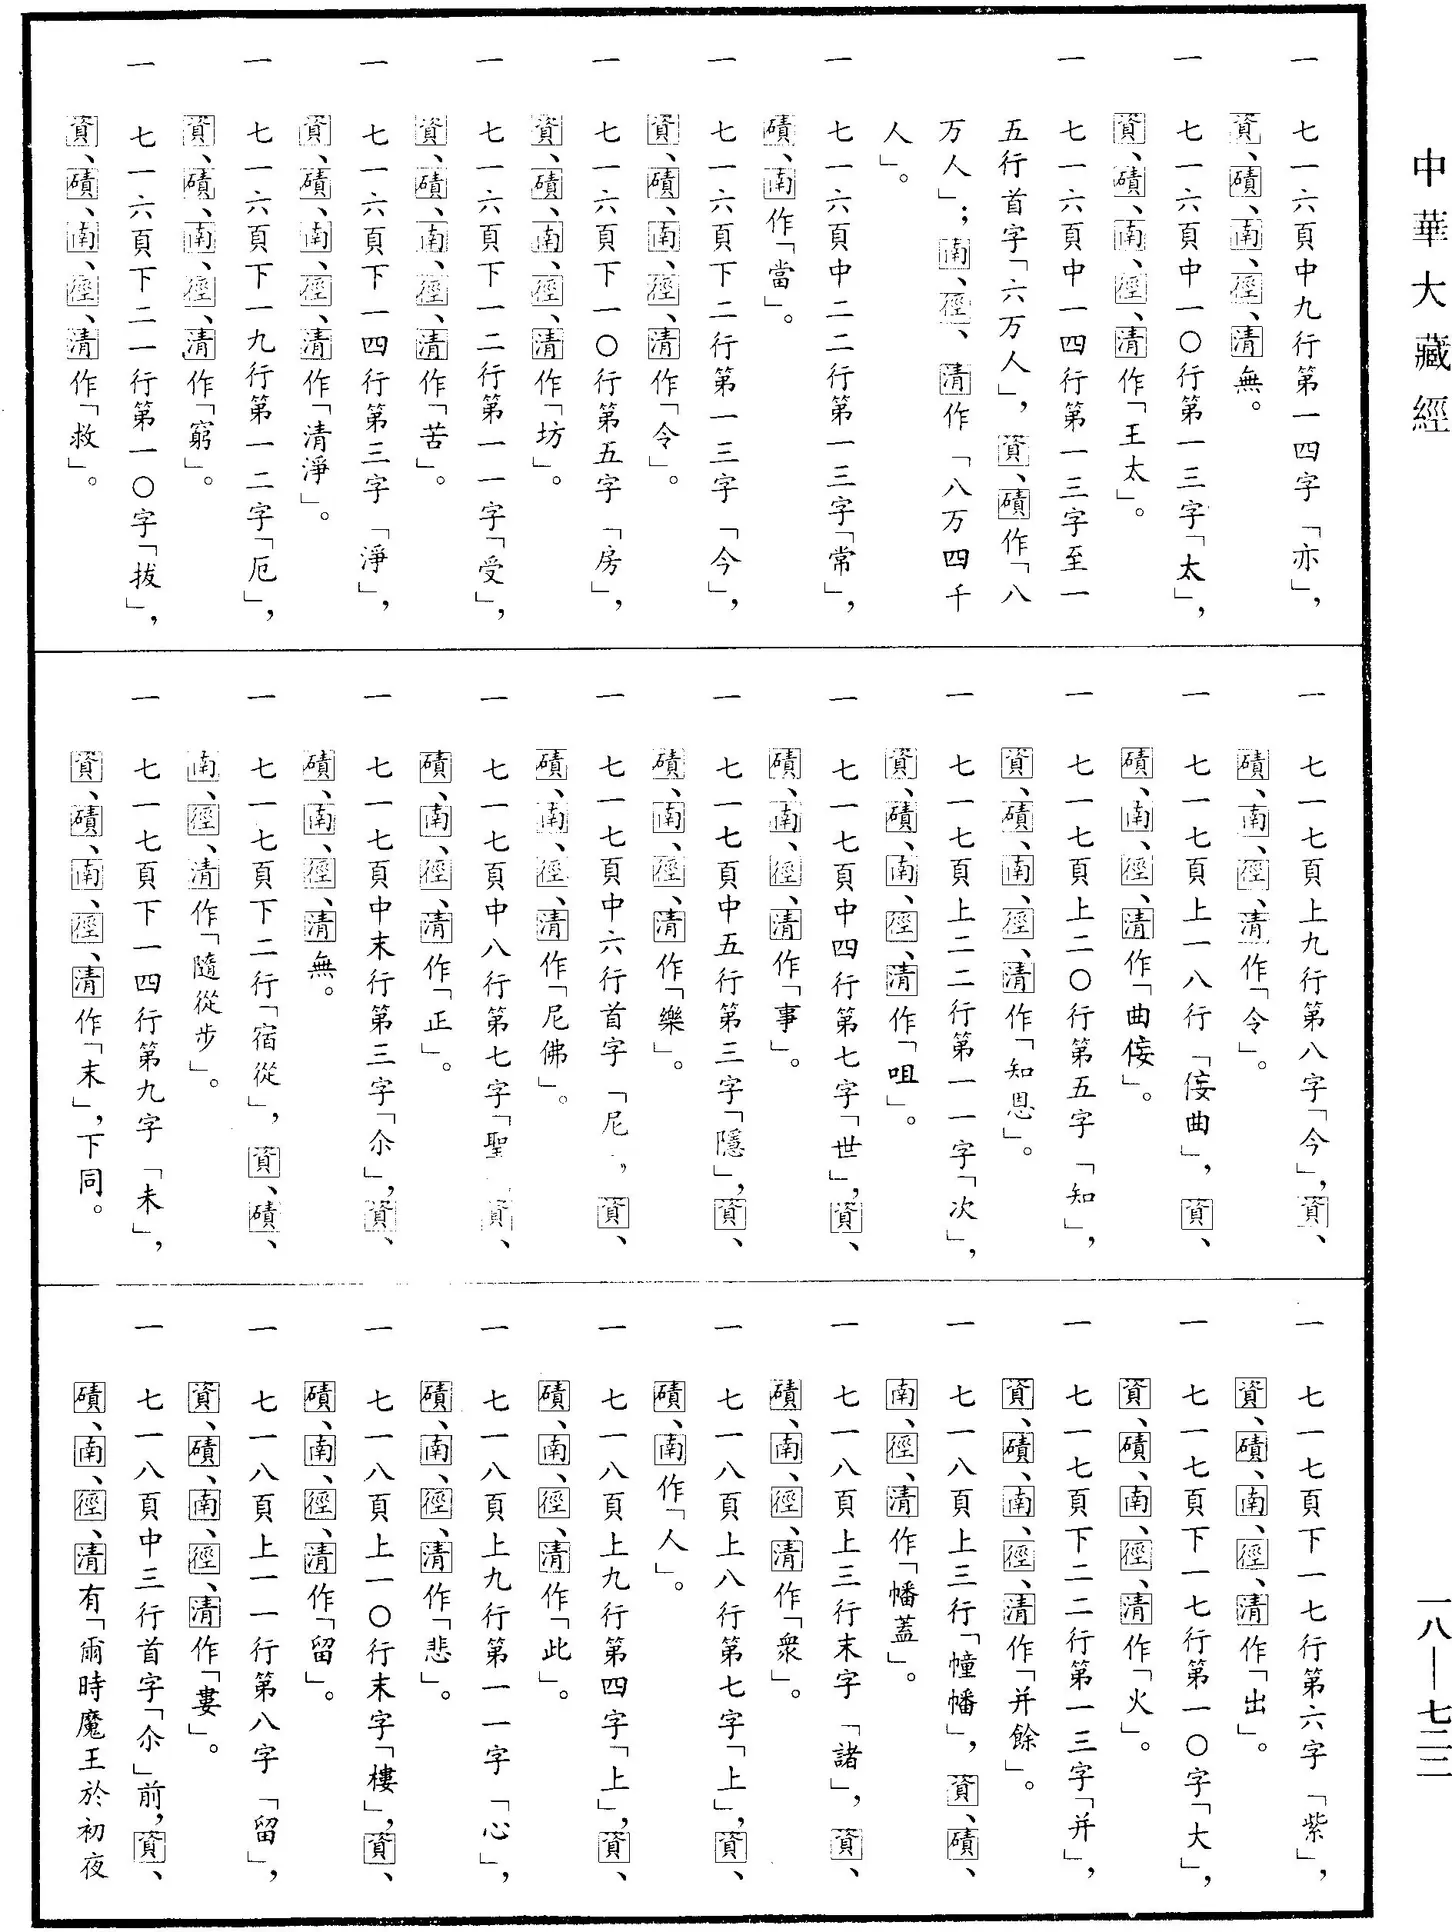 中華大藏經
一　七一六頁中九行第一四字「亦」，
資、磧、南、徑、清無。
一　七一六頁中一〇行第一三字「太」，
資、磧、南、徑、清作「王太」。
一　七一六頁中一四行第一三字至一
五行首字「六万人」，資、磧作「八
万人」；南、徑、清作「八万四千
人」。
一　七一六頁中二二行第一三字「常」，
磧、南作「當」。
一　七一六頁下二行第一三字「今」，
資、磧、南、徑、清作「令」。
一　七一六頁下一〇行第五字「房」，
資、磧、南、徑、清作「坊」。
一　七一六頁下一二行第一一字「受」，
資、磧、南、徑、清作「苦」。
一　七一六頁下一四行第三字「淨」，
資、磧、南、徑、清作「清淨」。
一　七一六頁下一九行第一二字「厄」，
資、磧、南、徑、清作「窮」。
一　七一六頁下二一行第一〇字「拔」，
資、磧、南、徑、清作「救」。
一　七一七頁上九行第八字「今」，資、
磧、南、徑、清作「令」。
一　七一七頁上一八行「侫曲」，資、
磧、南、徑、清作「曲侫」。
一　七一七頁上二〇行第五字「知」，
資、磧、南、徑、清作「知恩」。
一　七一七頁上二二行第一一字「次」，
資、磧、南、徑、清作「咀」。
一　七一七頁中四行第七字「世」，資、
磧、南、徑、清作「事」。
一　七一七頁中五行第三字「隱」，資、
磧、南、徑、清作「樂」。
一　七一七頁中六行首字「尼」，資、
磧、南、徑、清作「尼佛」。
一　七一七頁中八行第七字「聖」，資、
磧、南、徑、清作「正」。
一　七一七頁中末行第三字「尒」，資、
磧、南、徑、清無。
一　七一七頁下二行「宿從」，資、磧、
南、徑、清作「隨從步」。
一　七一七頁下一四行第九字「未」，
資、磧、南、徑、清作「末」，下同。
一　七一七頁下一七行第六字「紫」，
資、磧、南、徑、清作「出」。
一　七一七頁下一七行第一〇字「大」，
資、磧、南、徑、清作「火」。
一　七一七頁下二二行第一三字「并」，
資、磧、南、徑、清作「并餘」。
一　七一八頁上三行「幢幡」，資、磧、
南、徑、清作「幡蓋」。
一　七一八頁上三行末字「諸」，資、
磧、南、徑、清作「衆」。
一　七一八頁上八行第七字「上」，資、
磧、南作「人」。
一　七一八頁上九行第四字「上」，資、
磧、南、徑、清作「此」。
一　七一八頁上九行第一一字「心」，
磧、南、徑、清作「悲」。
一　七一八頁上一〇行末字「樓」，資、
磧、南、徑、清作「留」。
一　七一八頁上一一行第八字「留」，
資、磧、南、徑、清作「婁」。
一　七一八頁中三行首字「尒」前，資、
磧、南、徑、清有「爾時魔王於初夜
一八—七二二